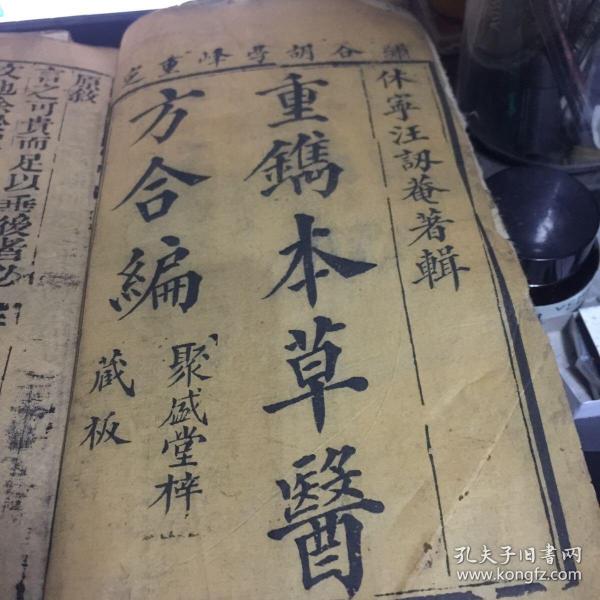 谷胡學峰重定
休寧汪訒菴著輯
重鐫本草醫
方合編
聚盛堂梓
藏板
原敘
言之可貴而足以垂後者必
孔夫子旧书网
www.kongfz.com